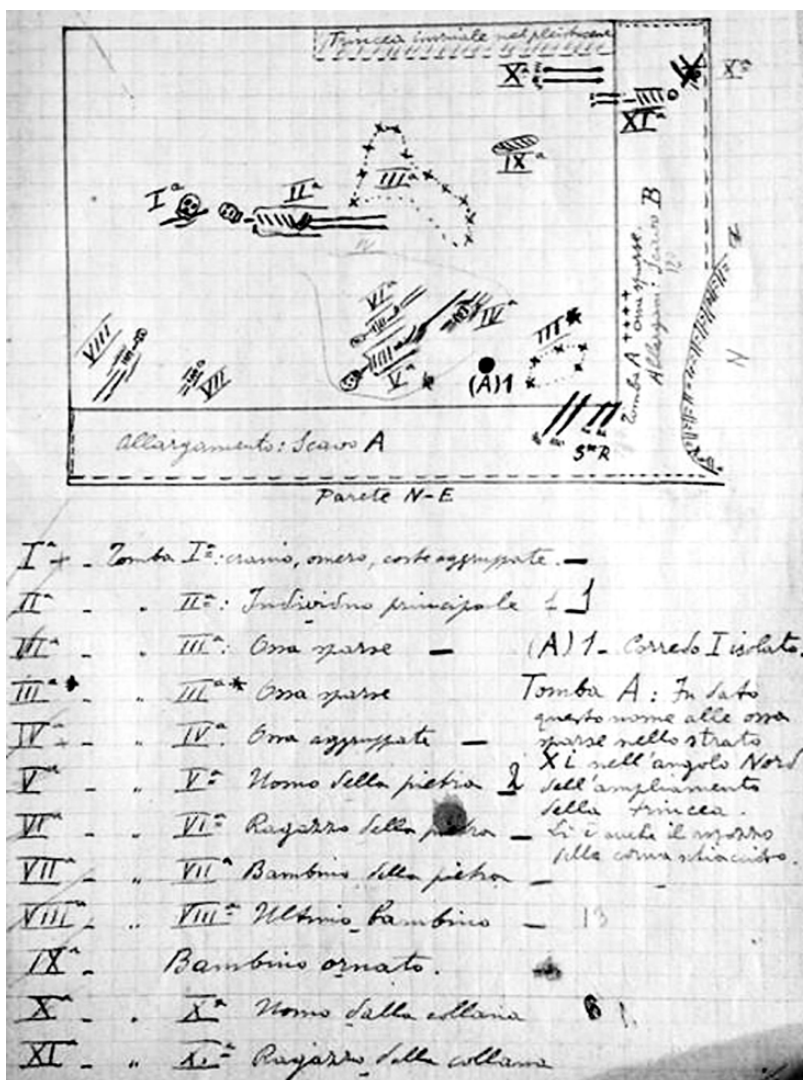 Trincea iniziale nel pleistocene
Xª
Xª
XIª
IXª
Iª
IIª
IIIª
IV
VIª
IVª
VIII
VII
Vª
III*
(A)1
Tomba A ++++ Ossa sparse.
Allargam: Scavo B
N
Allargamento: Scavo A
SªR
Parete N-E
Iª - Tomba Iª: cranio, omero, coste aggruppate. -
IIª - " IIª: Individuo principale 1
IIIª - " IIIª: Ossa sparse -
(A)1 - Corredo I isolato.
IIIª* - " IIIª* Ossa sparse
IVª - " IVª: Ossa aggruppate -
Vª - " Vª: Uomo della pietra 2
VIª - " VIª: Ragazzo della pietra -
VIIª - " VIIª Bambino della pietra -
VIIIª - " VIIIª: Ultimo bambino - 13
IXª - Bambino ornato.
Xª - " Xª Uomo dalla collana
XIª - " XIª Ragazzo della collana
Tomba A: Fu dato
questo nome alle ossa
sparse nello strato
XI nell'angolo Nord
dell'ampliamento
della trincea.
Lì è anche il